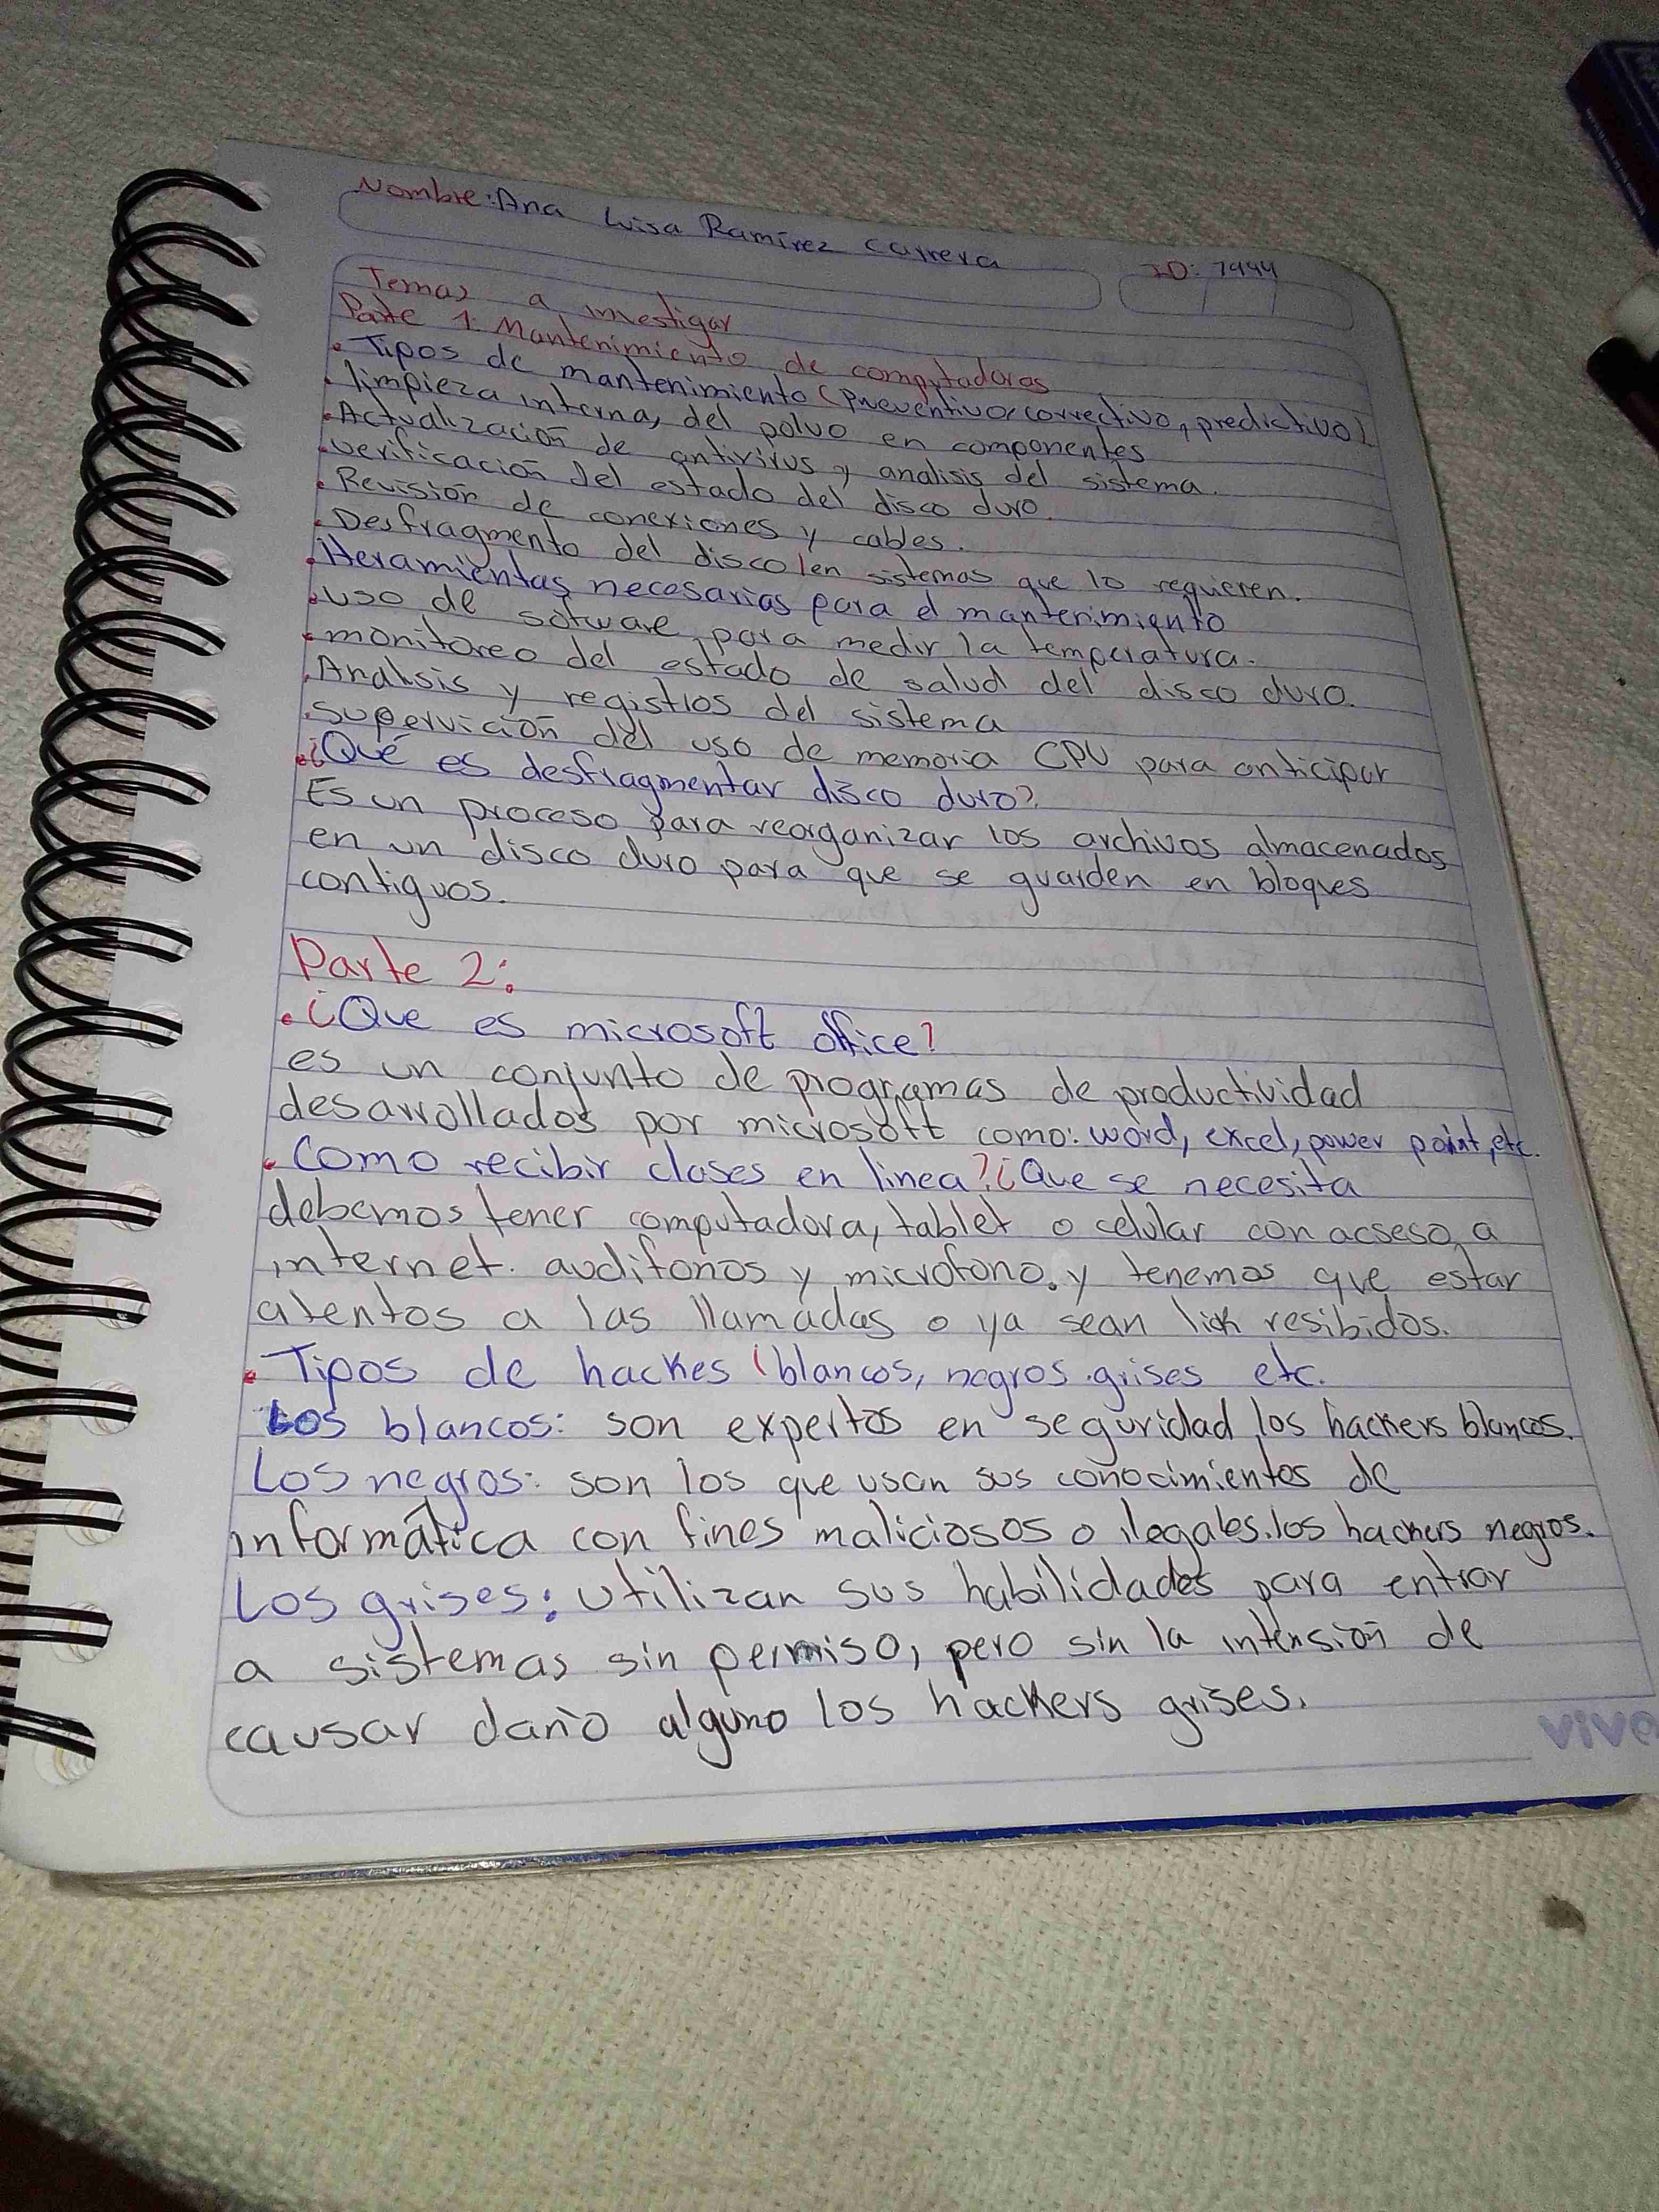 Nombre: Ana Luisa Ramírez Carrera
ID: 7444
Temas a investigar
Parte 1: Mantenimiento de computadoras
• Tipos de mantenimiento (Preventivo, correctivo, predictivo).
• limpieza interna, del polvo en componentes
• Actualización de antivirus y analisis del sistema.
• verificación del estado del disco duro.
• Revisión de conexiones y cables.
• Desfragmento del disco/en sistemas que lo requieren.
• Heramientas necesarias para el mantenimiento
• uso de sofware para medir la temperatura.
• monitoreo del estado de salud del disco duro.
• Analisis y registros del sistema
• supervición del uso de memoria CPU para anticipar
• ¿Qué es desfragmentar disco duro?
Es un proceso para reorganizar los archivos almacenados
en un disco duro para que se guarden en bloques
contiguos.
Parte 2:
• ¿Que es microsoft office?
es un conjunto de programas de productividad
desarrollados por microsoft como: word, excel, power point, etc.
• Como recibir clases en linea? ¿Que se necesita
debemos tener computadora, tablet o celular con acseso a
internet. audifonos y microfono. y tenemos que estar
atentos a las llamadas o ya sean link resibidos.
• Tipos de hackes (blancos, negros. grises etc.
Los blancos: son expertos en seguridad los hackers blancos.
Los negros: son los que usan sus conocimientos de
informática con fines maliciosos o ilegales. los hackers negros.
Los grises: utilizan sus habilidades para entrar
a sistemas sin permiso, pero sin la intensión de
causar daño alguno los hackers grises.